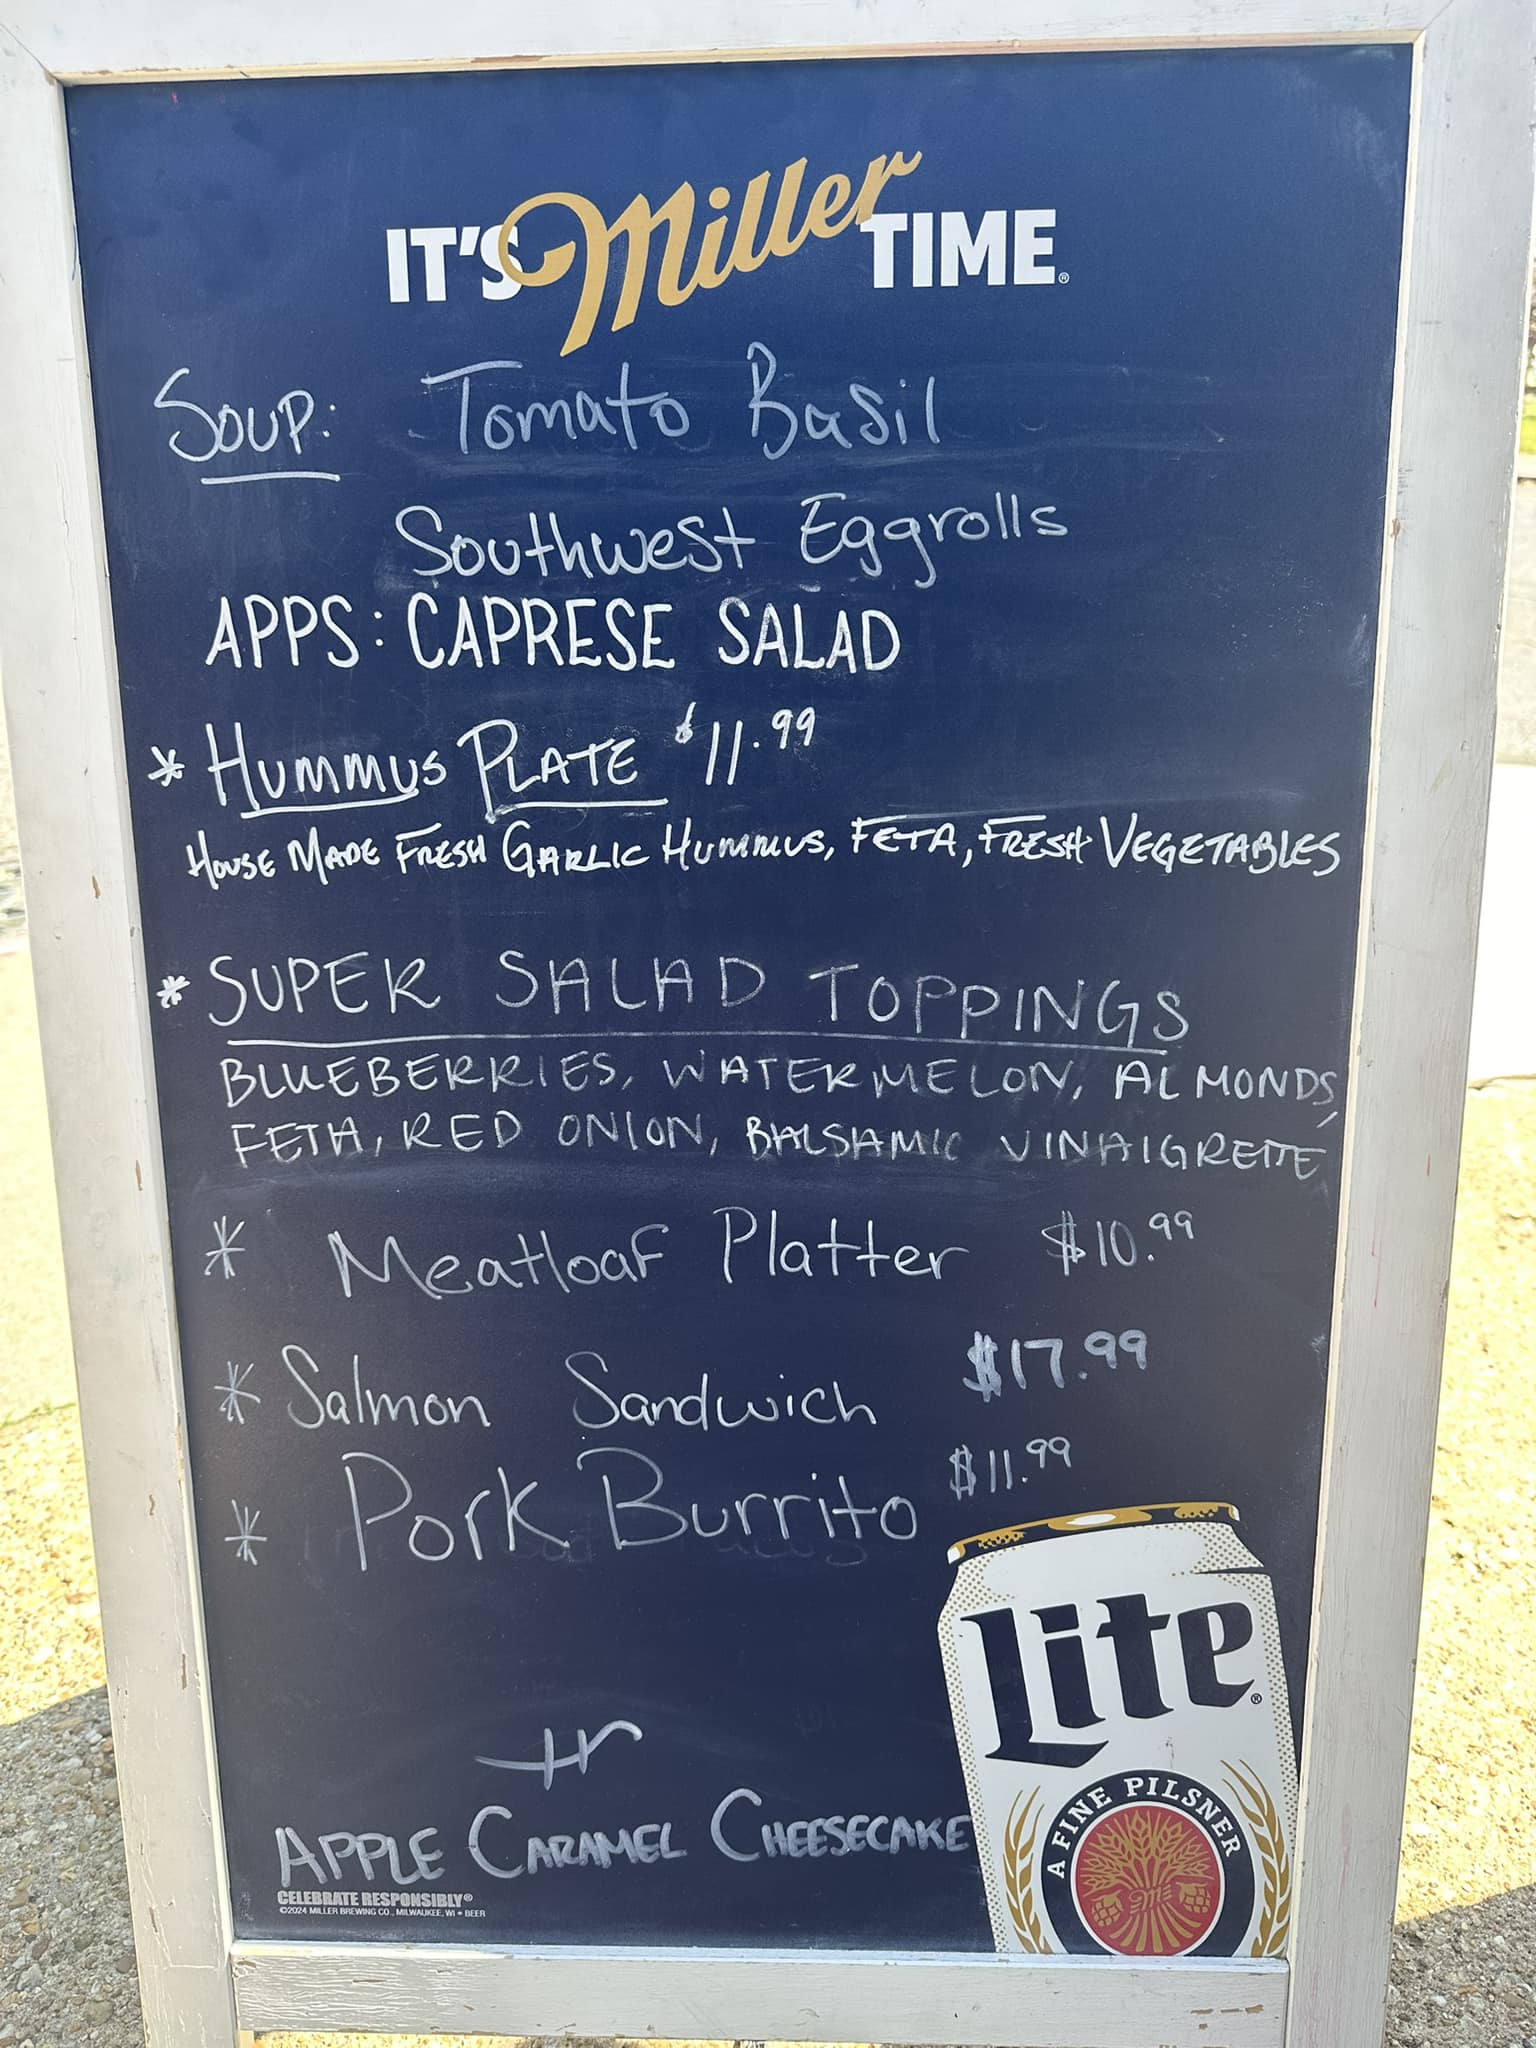 IT'S Miller TIME®
SOUP: Tomato Basil
Southwest Eggrolls
APPS: CAPRESE SALAD
* HUMMUS PLATE $11.99
HOUSE MADE FRESH GARLIC HUMMUS, FETA, FRESH VEGETABLES
* SUPER SALAD TOPPINGS
BLUEBERRIES, WATERMELON, ALMONDS,
FETA, RED ONION, BALSAMIC VINAIGRETTE
* Meatloaf Platter $10.99
* Salmon Sandwich $17.99
* Pork Burrito $11.99
Lite®
A FINE PILSNER
APPLE CARAMEL CHEESECAKE
CELEBRATE RESPONSIBLY®
©2024 MILLER BREWING CO., MILWAUKEE, WI • BEER